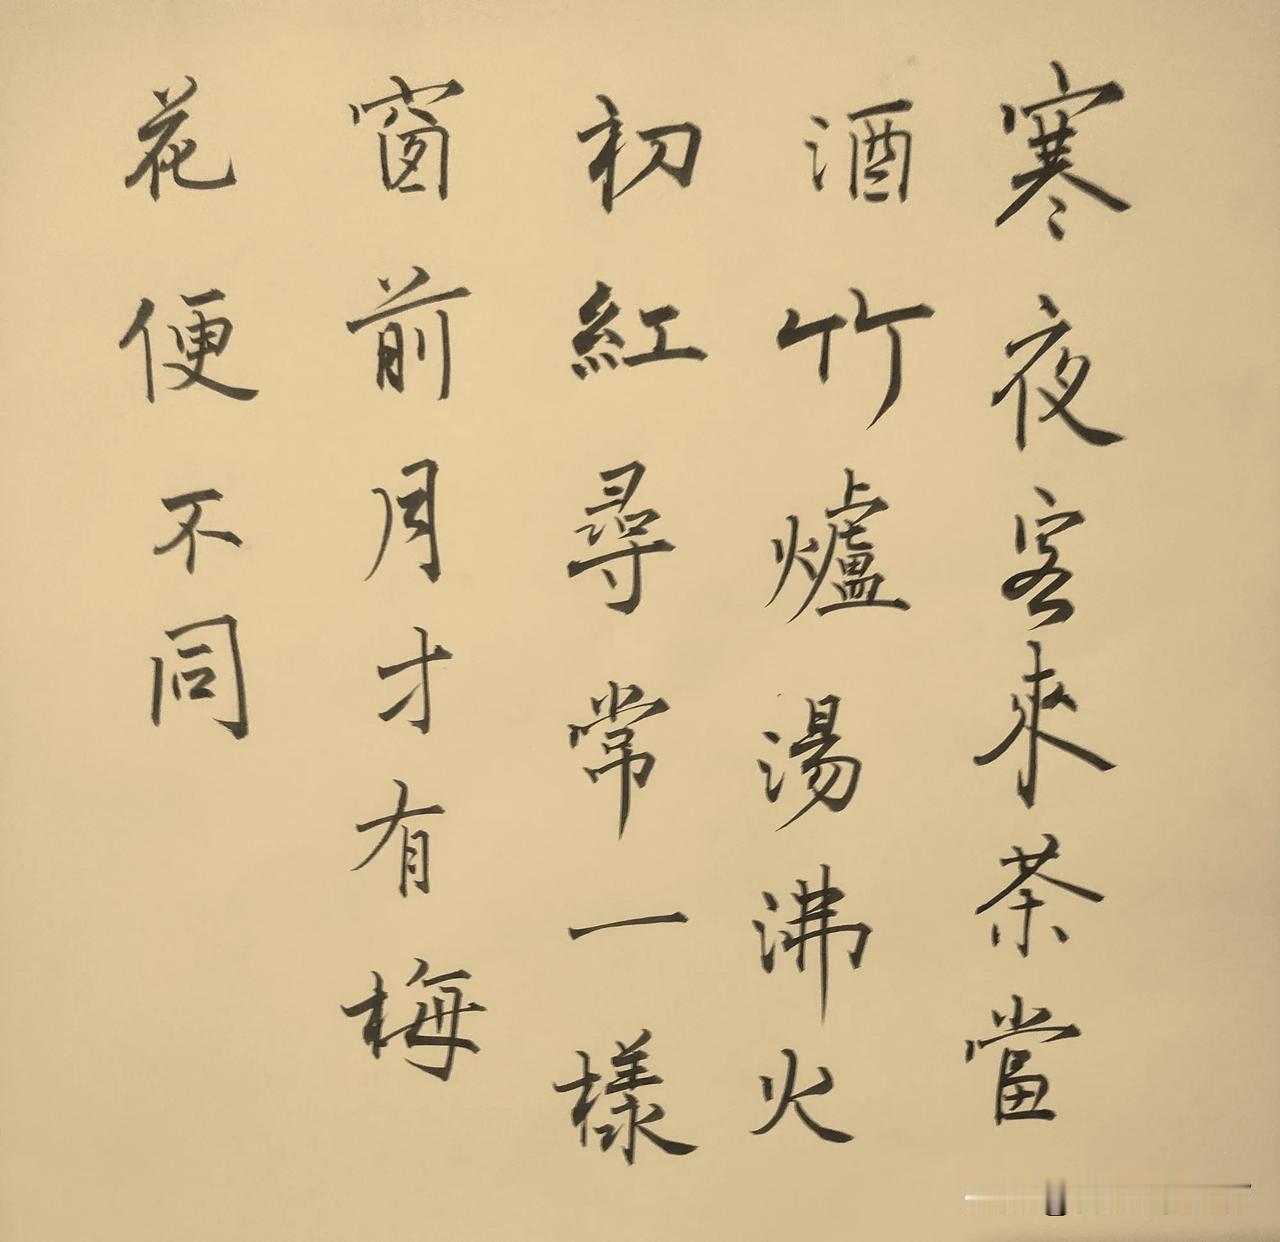 寒夜客來茶當
酒竹爐湯沸火
初紅尋常一樣
窗前月才有梅
花便不同